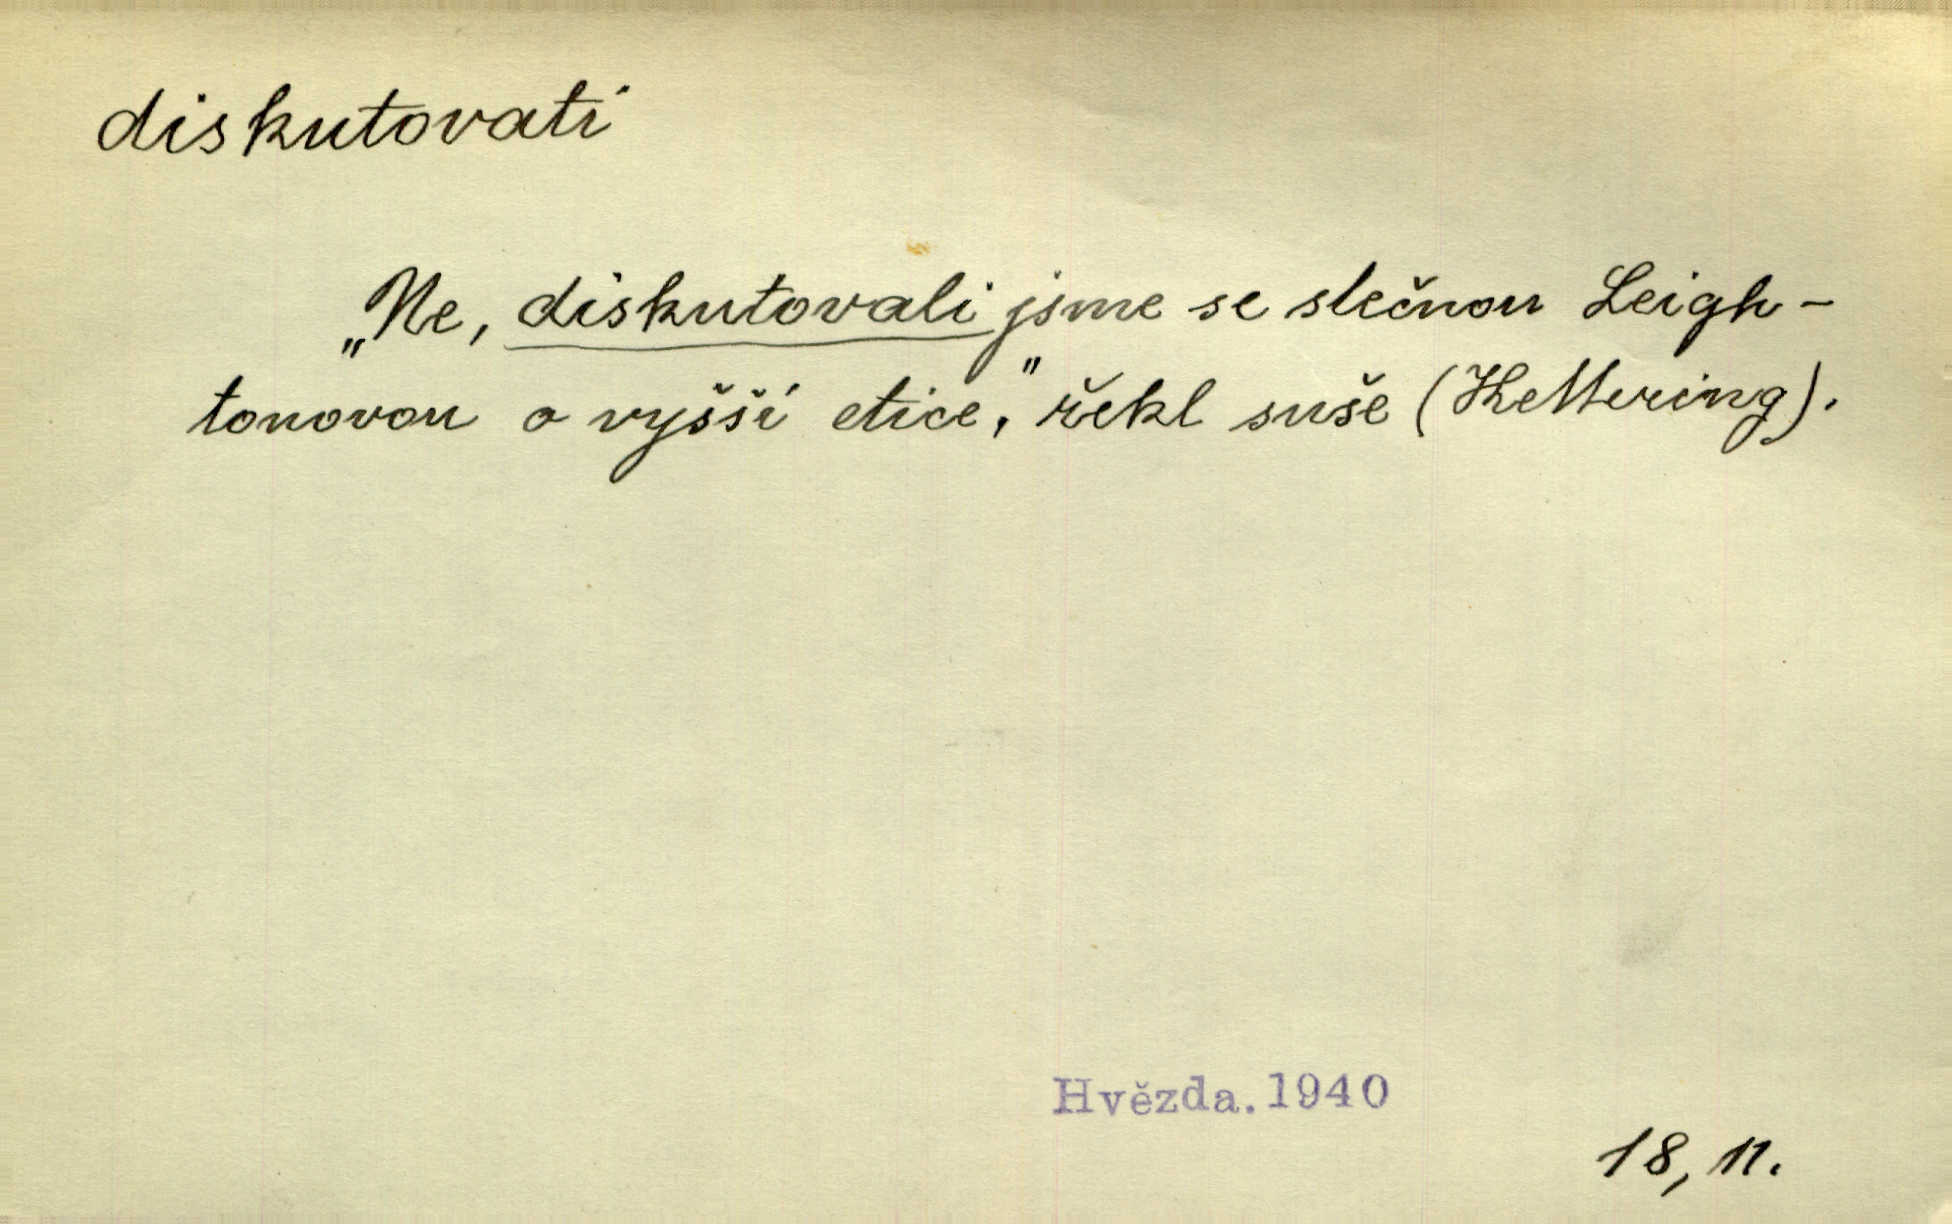 diskutovati
„Ne, diskutovali jsme se slečnou Leigh-
tonovou o vyšší etice," řekl suše (Kettering).
Hvězda. 1940
18, 11.